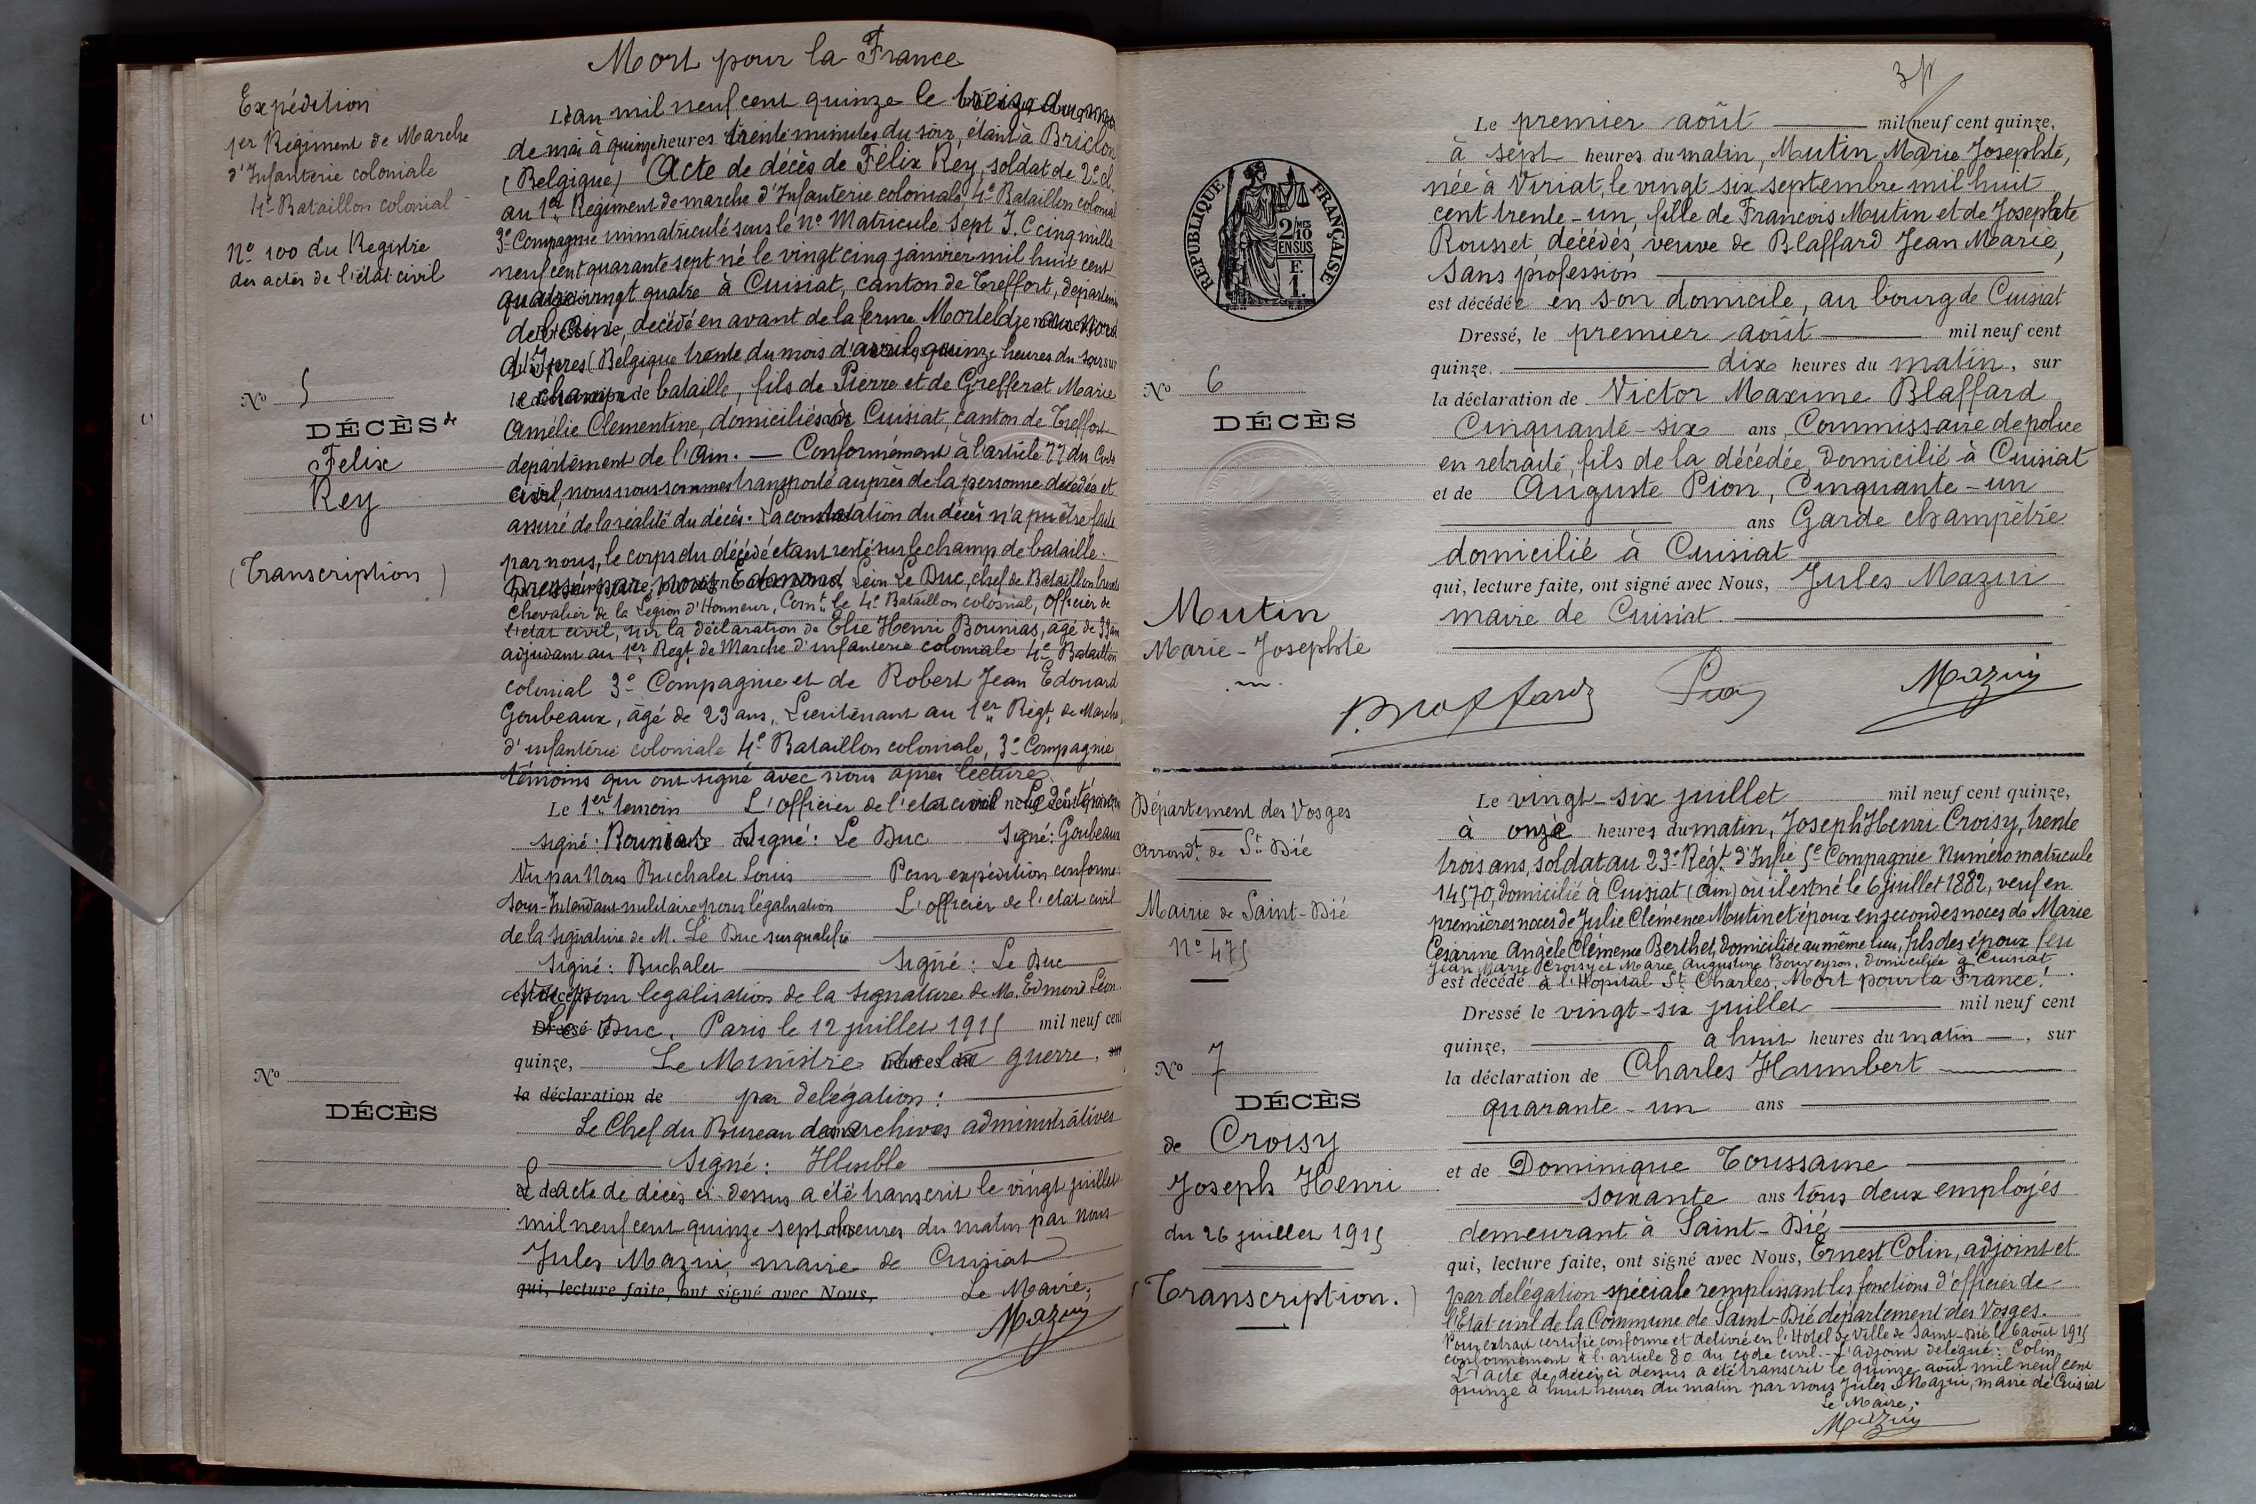 Mort pour la France
Expédition
1er Régiment de Marche
d'Infanterie coloniale
4e Bataillon colonial
No 100 du Registre
des actes de l'état civil
No 5
DÉCÈS de
Felix
Rey
(Transcription)
L'an mil neuf cent quinze le treize du mois
de mai à quinze heures trente minutes du soir, étant à Brielon
(Belgique) Acte de décès de Félix Rey, soldat de 2e cl.
au 1er Régiment de marche d'Infanterie coloniale, 4e Bataillon colonial
3e Compagnie immatriculé sous le No Matricule sept I. C cinq mille
neuf cent quarante sept né le vingt cinq janvier mil huit cent
quatre vingt quatre à Cuisiat, canton de Treffort, départem
de l'Ain, décédé en avant de la ferme Morteldje au Nord
d'Ypres (Belgique trente du mois d'avril quinze heures du soir sur
le champ de bataille, fils de Pierre et de Grefferat Marie
Amélie Clementine, domiciliés à Cuisiat, canton de Treffort
département de l'Ain. — Conformément à l'article 77 du Code
civil, nous nous sommes transporté auprès de la personne décédée et
assuré de la réalité du décès. La constatation du décès n'a pu être faite
par nous, le corps du décédé étant resté sur le champ de bataille.
Dressé par nous Edmond Léon Le Duc, chef de Bataillon breveté
Chevalier de la Légion d'Honneur, Comt le 4e Bataillon colonial, Officier de
l'état civil, sur la déclaration de Elie Henri Bounias, âgé de 39 ans
adjudant au 1er Regt de Marche d'infanterie coloniale 4e Bataillon
colonial 3e Compagnie et de Robert Jean Edouard
Goubeaux, âgé de 23 ans, Lieutenant au 1er Régt de Marche
d'infanterie coloniale 4e Bataillon coloniale, 3e Compagnie
témoins qui ont signé avec nous après lecture
Le 1er temoin L'officier de l'etat civil Le 2e témoin
signé: Bounias Signé: Le Duc Signé: Goubeaux
Vu par Nous Buchalet Louis — Pour expédition conforme:
Sous-Intendant militaire pour légalisation L'officier de l'état civil
de la signature de M. Le Duc susqualifié
Signé: Buchalet Signé: Le Duc
Vu pour légalisation de la signature de M. Edmond Léon
Le Duc. Paris le 12 juillet 1915 mil neuf cent
quinze, Le Ministre de la guerre,
No
DÉCÈS
la déclaration de par délégation:
Le Chef du Bureau des archives administratives
Signé: Illisible
L'acte de décès ci-dessus a été transcrit le vingt juillet
mil neuf cent quinze sept heures du matin par nous
Jules Mazuir, maire de Cuisiat
qui, lecture faite, ont signé avec Nous, Le Maire;
Mazuir
RÉPUBLIQUE FRANÇAISE
2/10 EN SUS
F. 1.
No 6
DÉCÈS
Mutin
Marie-Josephte
Le premier août mil neuf cent quinze,
à sept heures du matin, Mutin Marie Josephte,
née à Viriat, le vingt six septembre mil huit
cent trente-un, fille de François Mutin et de Josephte
Rousset, décédés, veuve de Blaffard Jean Marie,
sans profession
est décédée en son domicile, au bourg de Cuisiat
Dressé, le premier août mil neuf cent
quinze. dix heures du matin, sur
la déclaration de Victor Maxime Blaffard
Cinquante-six ans, Commissaire de police
en retraite, fils de la décédée, domicilié à Cuisiat
et de Auguste Pion, Cinquante-un
ans Garde champêtre
domicilié à Cuisiat
qui, lecture faite, ont signé avec Nous, Jules Mazuir
maire de Cuisiat.
Blaffard Pion Mazuir
Département des Vosges
Arrondt de St Dié
Mairie de Saint-Dié
No 475
No 7
DÉCÈS
de Croisy
Joseph Henri
du 26 juillet 1915
(Transcription.)
Le vingt-six juillet mil neuf cent quinze,
à onze heures du matin, Joseph Henri Croisy, trente
trois ans, soldat au 23e Régt d'Infie 5e Compagnie Numéro matricule
14570, domicilié à Cuisiat (Ain) où il est né le 6 juillet 1882, veuf en
premières noces de Julie Clémence Mutin et époux en secondes noces de Marie
Césarine Angèle Clémence Berthet, domiciliée au même lieu, fils des époux feu
Jean Marie Croisy et Marie Augustine Bouveyron, domiciliée à Cuisiat
est décédé à l'Hopital St Charles. Mort pour la France!
Dressé le vingt-six juillet mil neuf cent
quinze, à huit heures du matin, sur
la déclaration de Charles Humbert
quarante-un ans
et de Dominique Toussaine
soixante ans tous deux employés
demeurant à Saint-Dié
qui, lecture faite, ont signé avec Nous, Ernest Colin, adjoint et
par délégation spéciale remplissant les fonctions d'officier de
l'État civil de la Commune de Saint-Dié département des Vosges.
Pour extrait certifié conforme et délivré en l'Hotel de Ville de Saint-Dié le 6 août 1915
conformément à l'article 80 du code civil. - L'adjoint délégué: Colin
L'acte de décès ci dessus a été transcrit le quinze août mil neuf cent
quinze à huit heures du matin par nous Jules Mazuir, maire de Cuisiat
Le Maire;
Mazuir